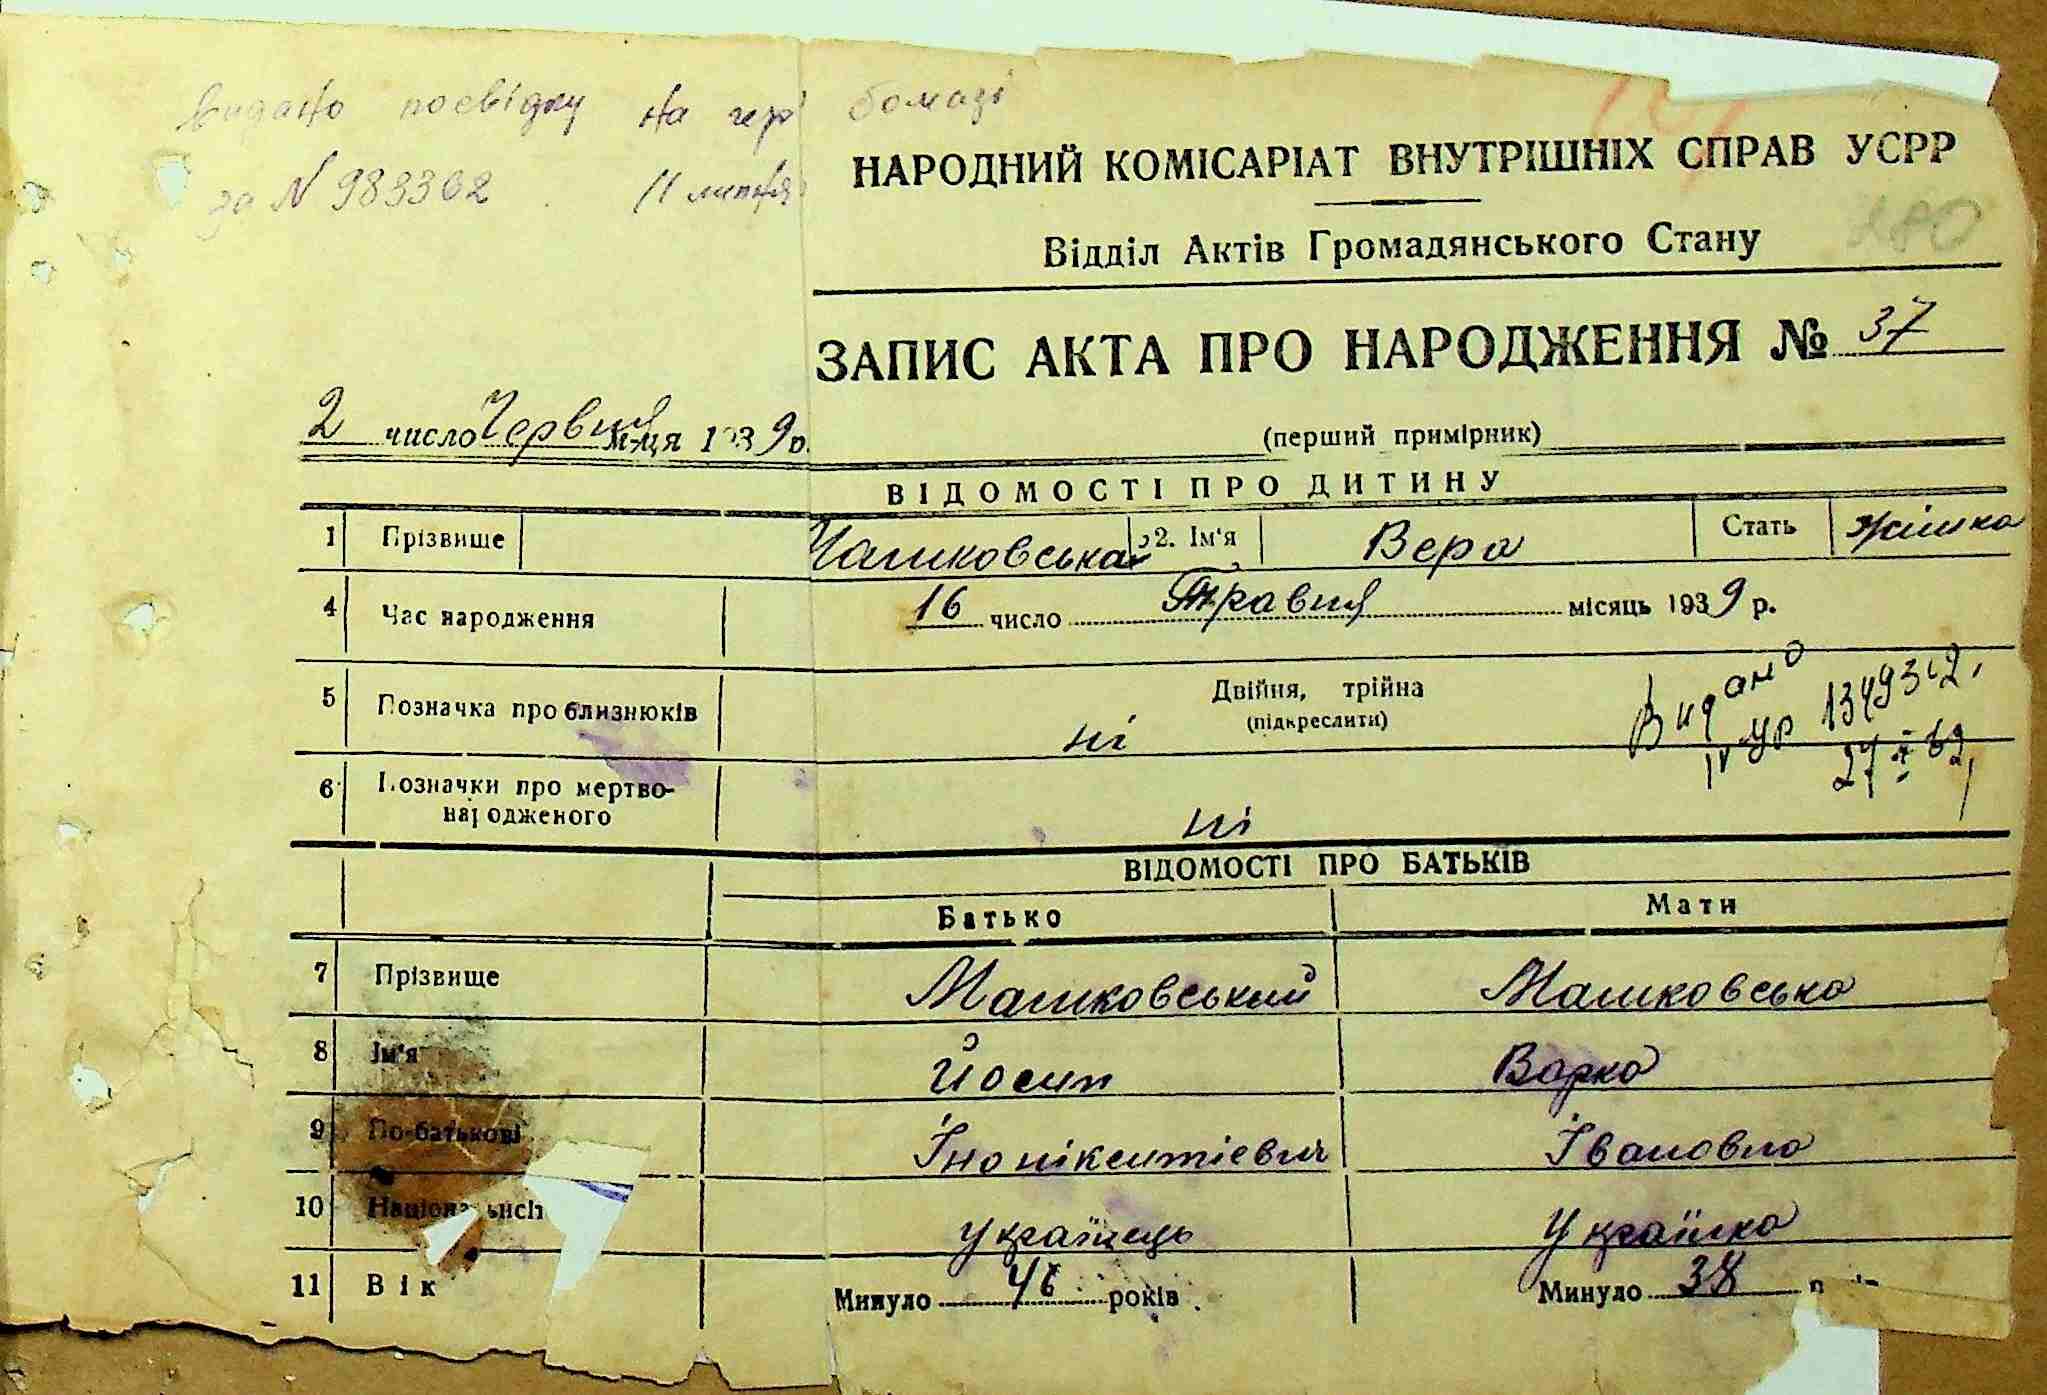 Видано посвідку на герб бомазі
за N 983362 11 липня
НАРОДНИЙ КОМІСАРІАТ ВНУТРІШНІХ СПРАВ УСРР
280
Відділ Актів Громадянського Стану
ЗАПИС АКТА ПРО НАРОДЖЕННЯ № 37
2 число Червня м-ця 1939 р.
(перший примірник)
ВІДОМОСТІ ПРО ДИТИНУ
1 Прізвище Машковська 2. Ім'я Вера Стать жінка
4 Час народження 16 число Травня місяць 1939 р.
5 Позначка про близнюків ні Двійня, трійна
(підкреслити)
Видано
IV УР 1349362
27 X 62
6 Позначки про мертво-
народженого ні
ВІДОМОСТІ ПРО БАТЬКІВ
Батько Мати
7 Прізвище Машковський Машковська
8 Ім'я Йосип Варка
9 По-батькові Інокікентіевич Івановна
10 Національність українець Українка
11 Вік Минуло 46 років. Минуло 38